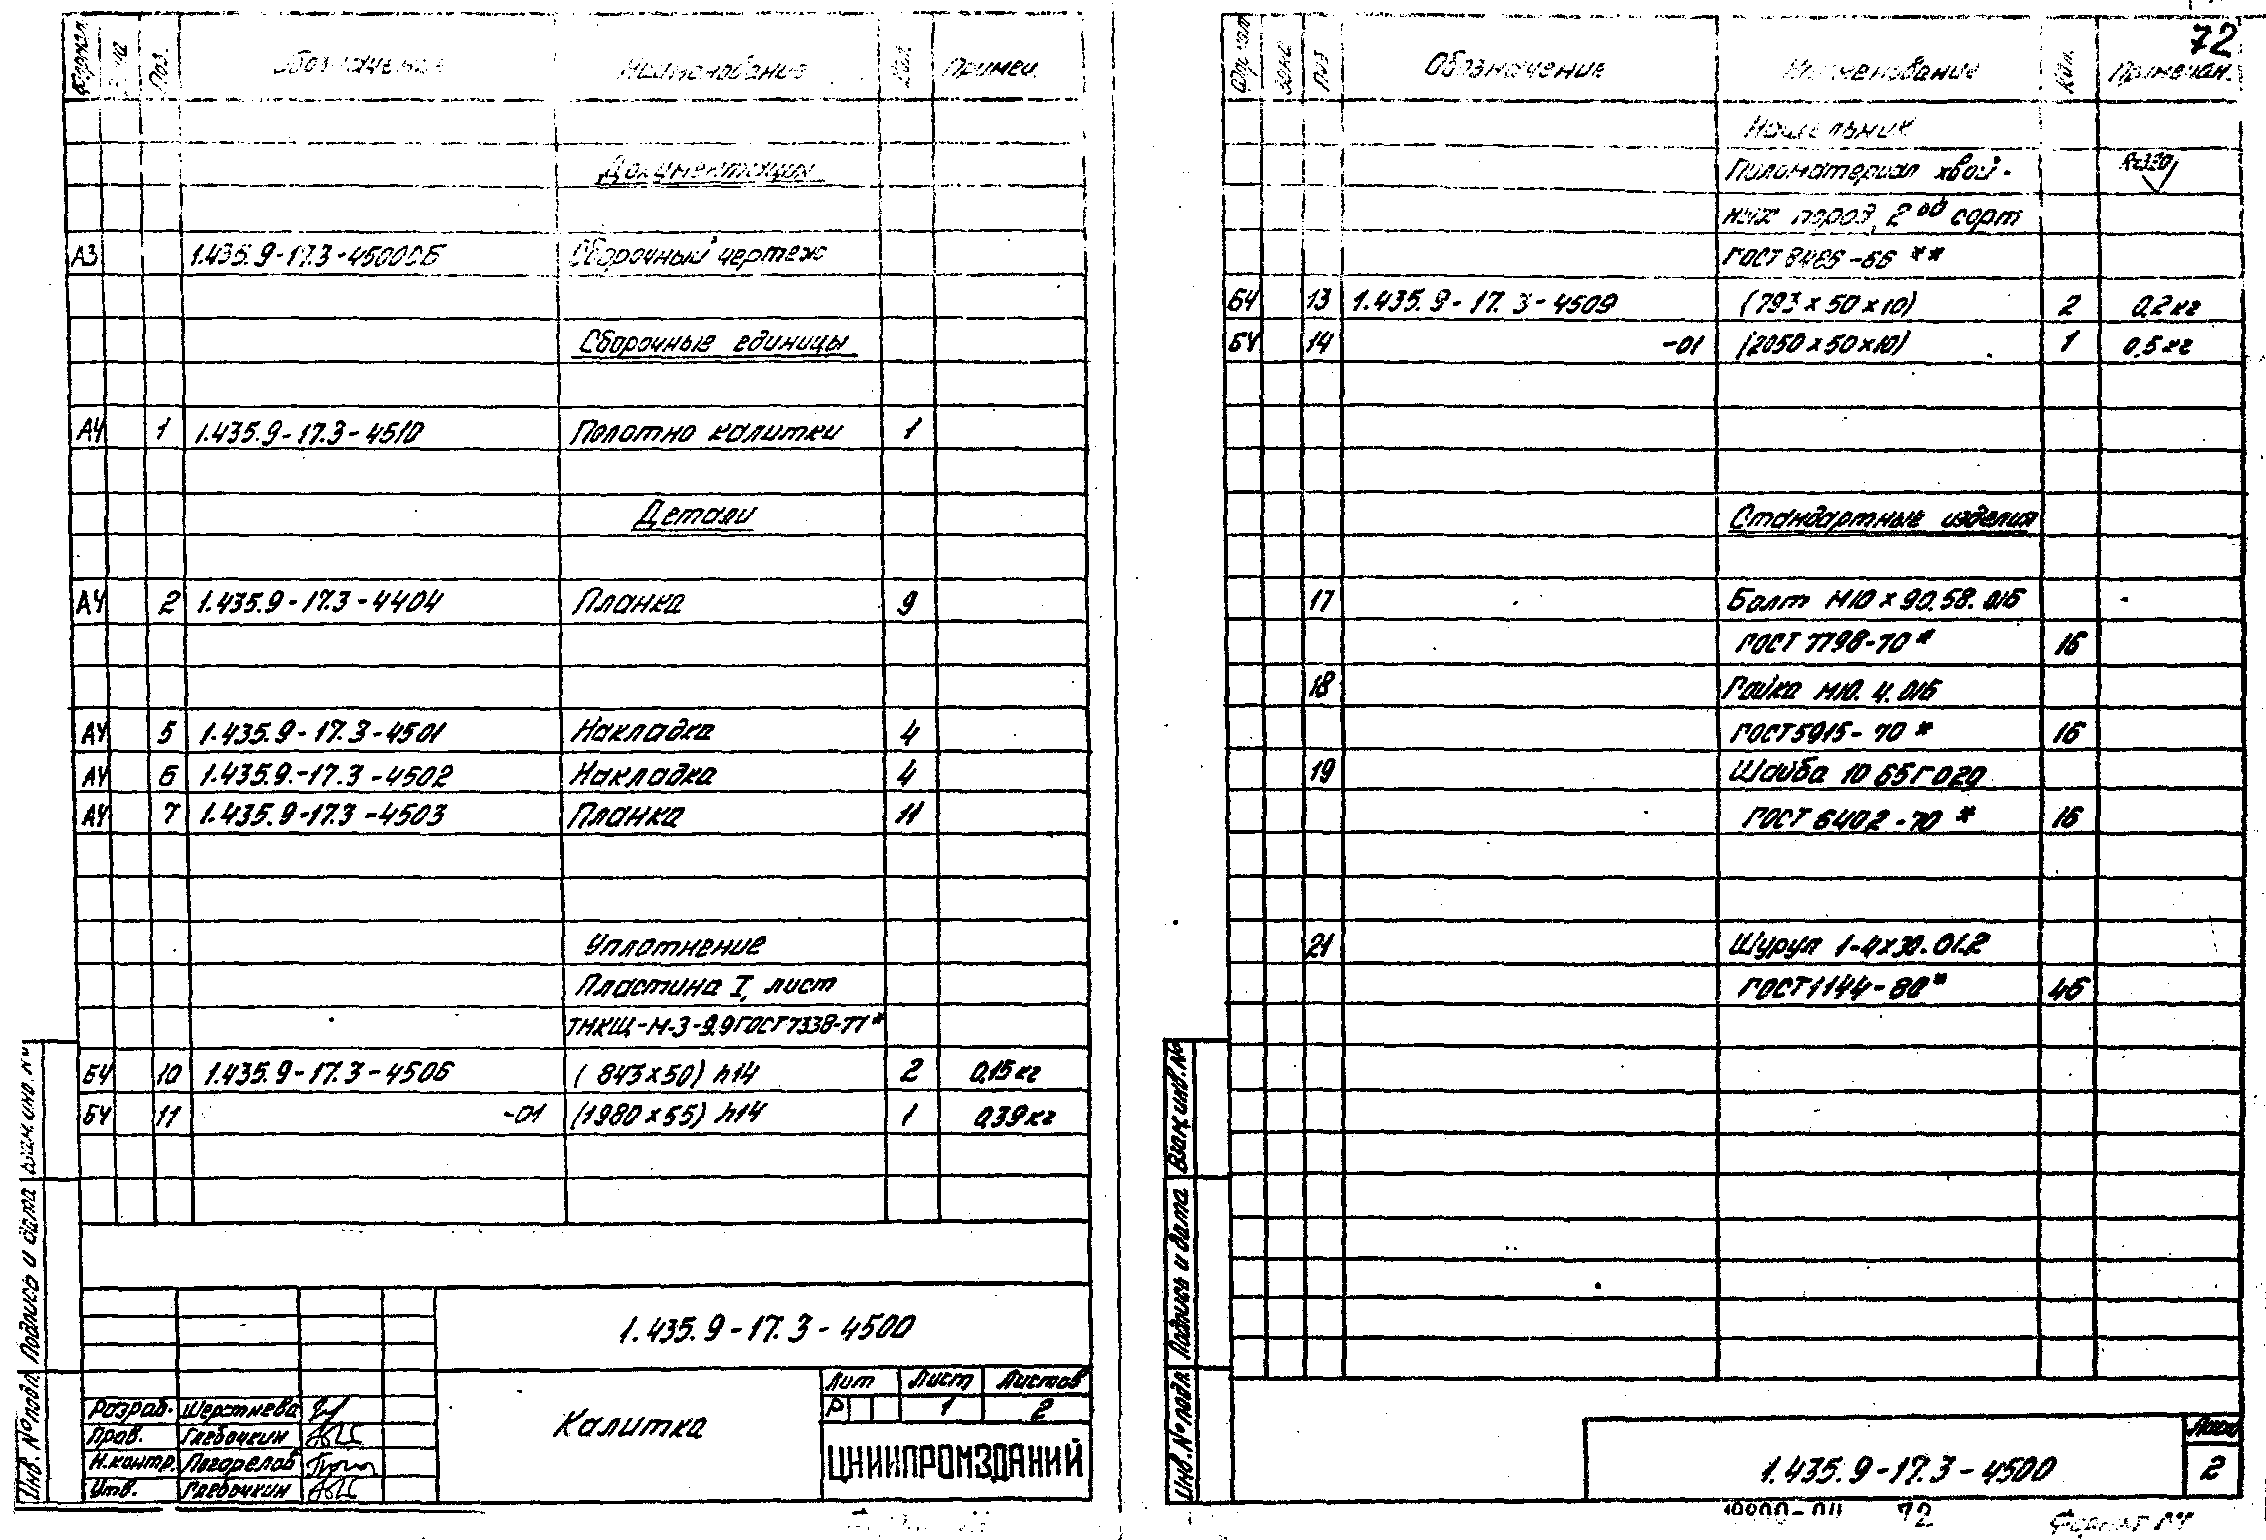 Формат Поз. Обозначение Наименование Кол. Примеч.
Документация
А3 1.435.9-17.3-4500СБ Сборочный чертеж
Сборочные единицы
А4 1 1.435.9-17.3-4510 Полотно калитки 1
Детали
А4 2 1.435.9-17.3-4404 Планка 9
А4 5 1.435.9-17.3-4501 Накладка 4
А4 6 1.435.9-17.3-4502 Накладка 4
А4 7 1.435.9-17.3-4503 Планка 11
Уплотнение
Пластина I, лист
ТМКЩ-М-3-9.9 ГОСТ 7338-77*
БЧ 10 1.435.9-17.3-4506 (843×50) h14 2 0,15кг
БЧ 11 -01 (1980×55) h14 1 0,39кг
Взам. инв. №
Подпись и дата
Инв. № подл.
1.435.9-17.3-4500
Разраб. Шерстнева
Пров. Глебочкин
Н.контр. Погорелов
Утв. Глебочкин
Калитка
Лит Лист Листов
Р 1 2
ЦНИИПРОМЗДАНИЙ
72
Формат Зона Поз Обозначение Наименование Кол. Примечан.
Нащельник
Пиломатериал хвой-
ных пород, 2ой сорт
ГОСТ 8486-66 **
БЧ 13 1.435.9-17.3-4509 (793×50×10) 2 0,2кг
БЧ 14 -01 (2050×50×10) 1 0,5кг
Стандартные изделия
17 Болт М10×90.58.016
ГОСТ 7798-70* 16
18 Гайка М10.4.016
ГОСТ 5915-70* 16
19 Шайба 10 65Г 029
ГОСТ 6402-70* 16
21 Шуруп 1-4×30.01.2
ГОСТ 1144-80* 46
Взам. инв. №
Подпись и дата
Инв. № подл.
1.435.9-17.3-4500
Лист
2
72
Формат А4